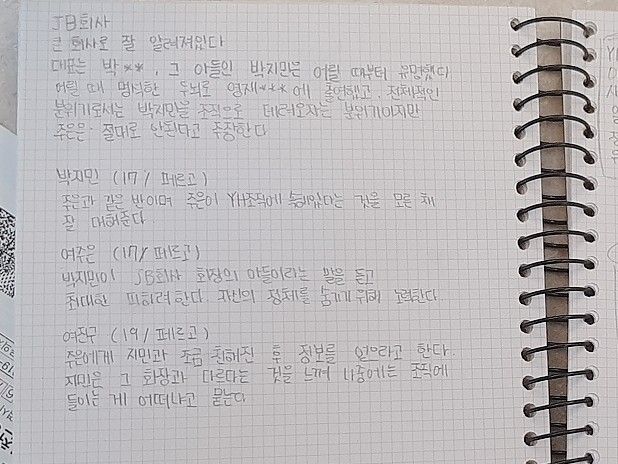 JB회사
큰 회사로 잘 알려져있다
대표는 박**, 그 아들인 박지민은 어릴 때부터 유명했다
어릴 때 명석한 두뇌로 영재***에 출연했고, 전체적인
분위기로서는 박지민을 조직으로 데려오자는 분위기이지만
주은은 절대로 안된다고 주장한다
박지민 (17 / 페르고)
주은과 같은 반이며 주은이 YH조직에 속해있다는 것을 모른 채
잘 대해준다
여주은 (17 / 페르고)
박지민이 JB회사 회장의 아들이라는 말을 듣고
최대한 피하려한다. 자신의 정체를 숨기기 위해 노력한다
여전구 (19 / 페르고)
주은에게 지민과 조금 친해진 후 정보를 얻으라고 한다.
지민은 그 회장과 다르다는 것을 느껴 나중에는 조직에
들이는 게 어떠냐고 묻는다
YH